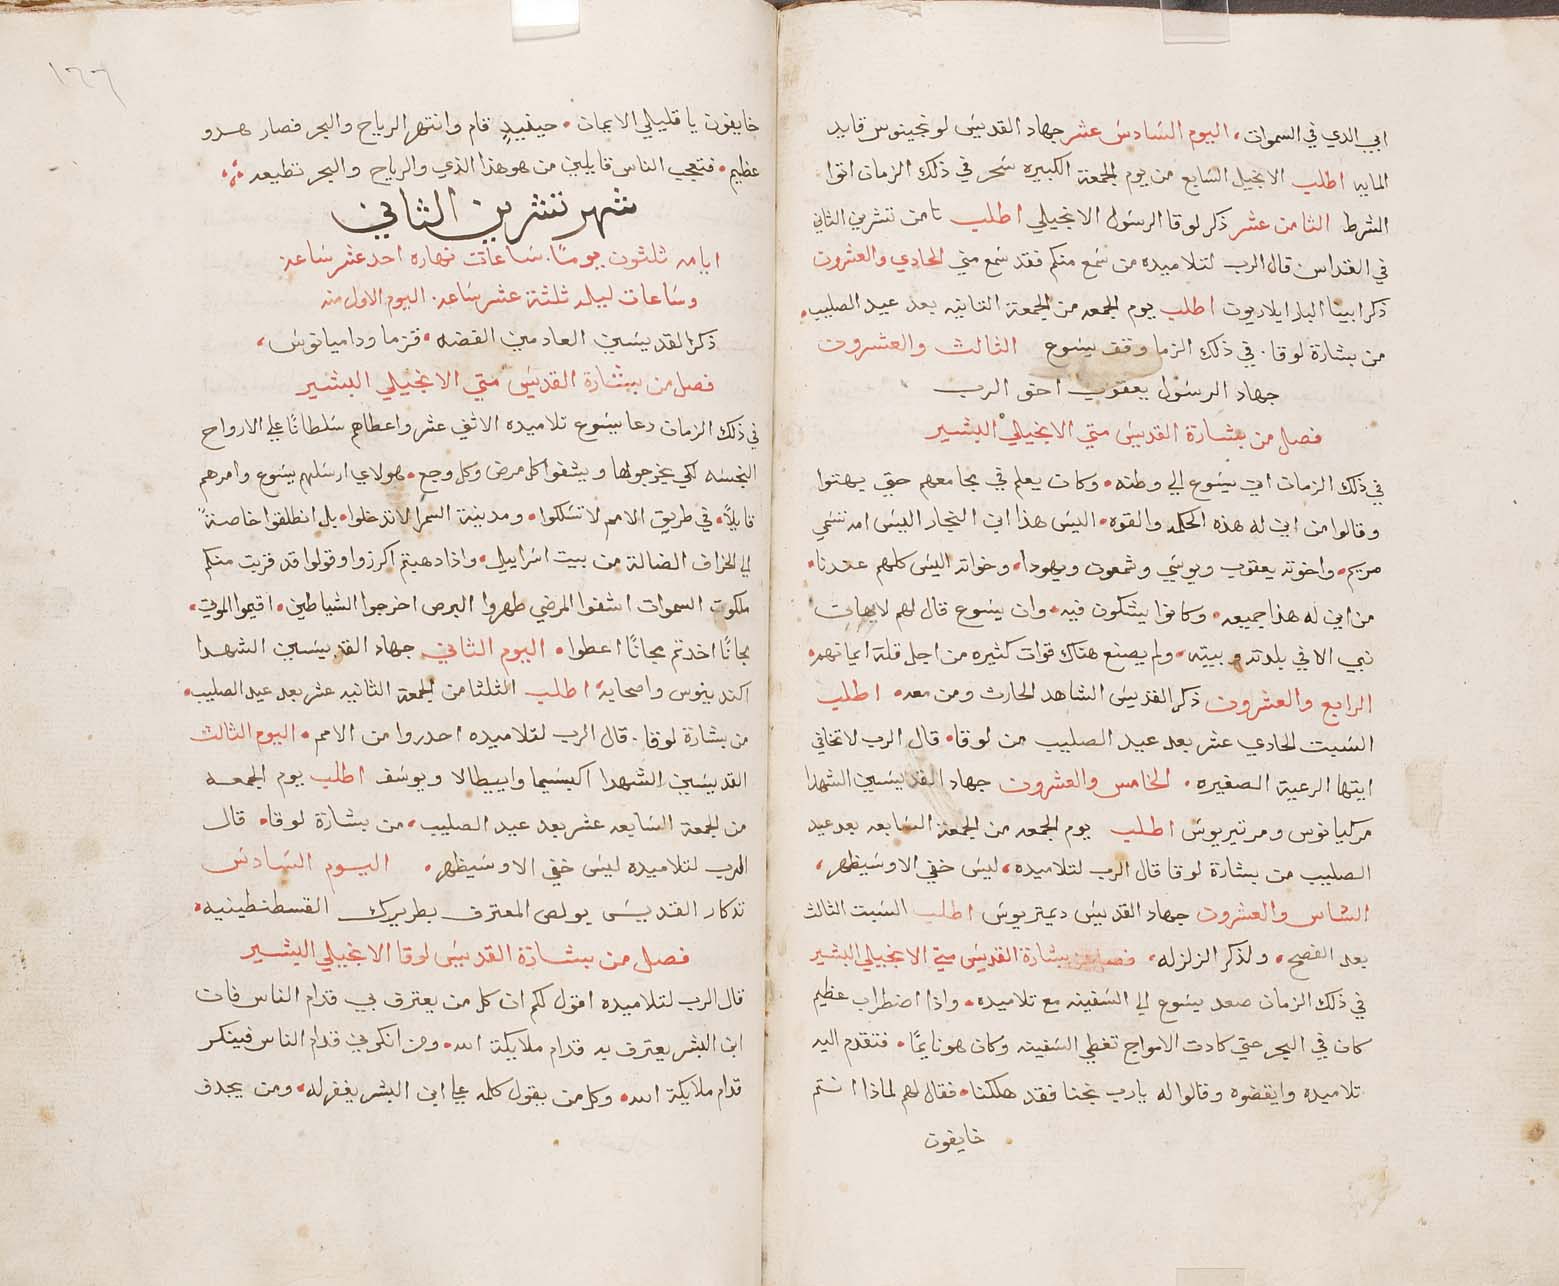 ابي الدي في السموات، اليوم السادس عشر جهاد القديس لونجينوس قايد
المايه اطلب الانجيل السابع من يوم الجمعة الكبيره سحر في ذلك الزمان اتوا
الشرط الثامن عشر ذكر لوقا الرسول الانجيلي اطلب ثامن تشرين الثاني
في القداس قال الرب لتلاميده من سمع منكم فقد سمع مني الحادي والعشرون
ذكر ابينا البار ايلاريون اطلب يوم الجمعه من الجمعة الثانيه بعد عيد الصليب •
من بشارة لوقا. في ذلك الزما وقف يسوع الثالث والعشرون
جهاد الرسول يعقوب اخو الرب
فصل من بشارة القديس متي الانجيلي البشير
في ذلك الزمان اتي يسوع الي وطنه • وكان يعلم في مجامعهم حتي يهتوا
وقالوا من اين له هذه الحكمه والقوه • اليس هذا ابن النجار اليس امه تسمي
مريم • واخوته يعقوب ويوسي وشمعون ويهودا • وخواته اليس كلهم عندنا •
من اين له هذا جميعه • وكانوا يشكون فيه • وان يسوع قال لهم لايهان
نبي الا في بلدته وبيته • ولم يصنع هناك قوات كثيره من اجل قلة ايمانهم •
الرابع والعشرون ذكر القديس الشاهد الحارث ومن معه • اطلب
السبت الحادي عشر بعد عيد الصليب من لوقا • قال الرب لا تخافي
ايتها الرعية الصغيره • الخامس والعشرون جهاد القديسين الشهدا
مركيانوس ومرتيريوس اطلب يوم الجمعه من الجمعة السابعه بعد عيد
الصليب من بشارة لوقا قال الرب لتلاميده، ليس خفي الا وسيظهر،
السادس والعشرون جهاد القديس ديمتريوس اطلب السبت الثالث
بعد الفصح • ولذكر الزلزله، فصل من بشارة القديس متي الانجيلي البشير
في ذلك الزمان صعد يسوع الي السفينه مع تلاميده • واذا اضطراب عظيم
كان في البحر حتي كادت الامواج تغطي السفينه وكان هو نايمًا • فتقدم اليه
تلاميده وايقضوه وقالوا له يارب نجنا فقد هلكنا • فقال لهم لماذا انتم
خايفون
١٦٦
خايفون يا قليلي الايمان • حينيدٍ قام وانتهر الرياح والبحر فصار هدو
عظيم • فتعجب الناس قايلين من هو هذا الذي والرياح والبحر تطيعه
شهر تشرين الثاني
ايامه ثلثون يومًا. ساعات نهاره احد عشر ساعه
وساعات ليله ثلثة عشر ساعه. اليوم الاول منه
ذكر القديسين العادمين الفضه • قزما وداميانوس،
فصل من بشارة القديس متي الانجيلي البشير
في ذلك الزمان دعا يسوع تلاميده الاثني عشر واعطاهم سلطانًا علي الارواح
النجسه لكي يخرجوها ويشفوا كل مرض وكل وجع • هولاي ارسلهم يسوع وامرهم
قايلًا • في طريق الامم لا تسلكوا • ومدينة السمرا لا تدخلوا • بل انطلقوا خاصةً
الي الخراف الضالة من بيت اسراييل • واذا دهبتم اكرزوا وقولوا قد قربت منكم
ملكوت السموات اشفوا المرضي طهروا البرص اخرجوا الشياطين • اقيموا الموتي •
مجانًا اخدتم مجانًا اعطوا • اليوم الثاني جهاد القديسين الشهدا
اكندينوس واصحابه اطلب الثلثا من الجمعة الثانيه عشر بعد عيد الصليب •
من بشارة لوقا. قال الرب لتلاميده احدروا من الامم • اليوم الثالث
القديسين الشهدا اكبسيما وايبيطالا ويوسف اطلب يوم الجمعه
من الجمعة السابعه عشر بعد عيد الصليب • من بشارة لوقا • قال
الرب لتلاميده ليس خفي الا وسيظهر • اليوم السادس
تدكار القديس بولص المعترف بطريرك القسطنطينيه •
فصل من بشارة القديس لوقا الانجيلي البشير
قال الرب لتلاميده اقول لكم ان كل من يعترف بي قدام الناس فان
ابن البشر يعترف به قدام ملايكة الله • ومن انكرني قدام الناس فينكر
قدام ملايكة الله • وكل من يقول كلمه علي ابن البشر يغفر له • ومن يجدف